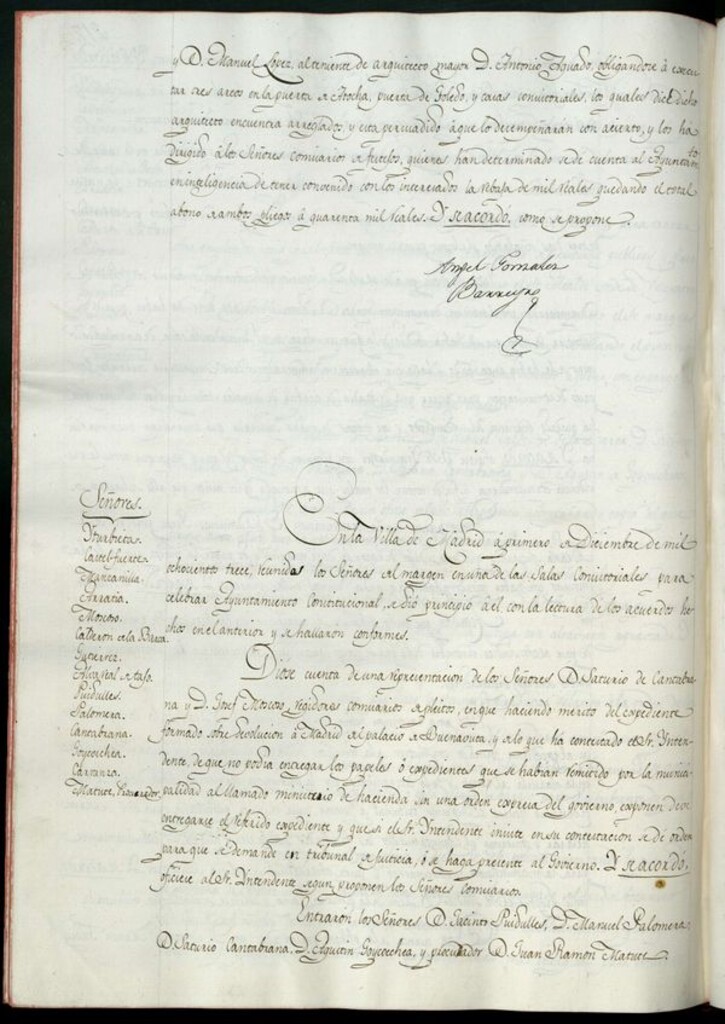 y D. Manuel Lopez, al teniente de arquitecto mayor D. Antonio Aguado, obligandose á execu-
tar tres arcos en la puerta de Atocha, puerta de Toledo, y casas consistoriales, los quales dice dicho
arquitecto encuentra arreglados, y esta persuadido á que lo desempeñarán con acierto, y los ha
dirigido á los Señores comisarios de festejos, quienes han determinado se dé cuenta al Ayuntam.to
en inteligencia de tener convenido con los interesados la rebaja de mil reales quedando el total
abono de ambos pliegos á quarenta mil reales. Y se acordó, como se propone.
Angel Gonzalez
Barreyro
Señores.
Yturbieta.
Castel-fuerte.
Manzanilla.
Arratia.
Moscoso.
Calderon de la Barca.
Gutierrez.
Puidulles.
Palomera.
Cantabrana.
Goycoechea.
Carranza.
Matute, Procurador
En la Villa de Madrid á primero de Diciembre de mil
ochocientos trece, reunidos los Señores del margen en una de las Salas Consistoriales para
celebrar Ayuntamiento Constitucional, se dió principio á él con la lectura de los acuerdos he-
chos en el anterior y se hallaron conformes.
Diose cuenta de una representacion de los Señores D. Saturio de Cantabra-
na y D. Josef Moscoso regidores comisarios de pleitos, en que haciendo merito del expediente
formado sobre devolucion á Madrid del palacio de Buenavista, y de lo que ha contestado el Sr. Inten-
dente, de que no podia entregar los papeles ó expedientes que se habian remitido por la munici-
palidad al llamado ministerio de hacienda sin una orden expresa del govierno, exponen deve
entregarse el referido expediente y que si el Sr. Yntendente insiste en su contestacion se dé orden
para que se demande en tribunal de Justicia, ó se haga presente al Govierno. Y se acordó,
oficiese al Sr. Yntendente segun proponen los Señores comisarios.
Entraron los Señores D. Jacinto Puidulles, D. Manuel Palomera,
D. Saturio Cantabrana, D. Agustin Goycoechea, y procurador D. Juan Ramon Matute.